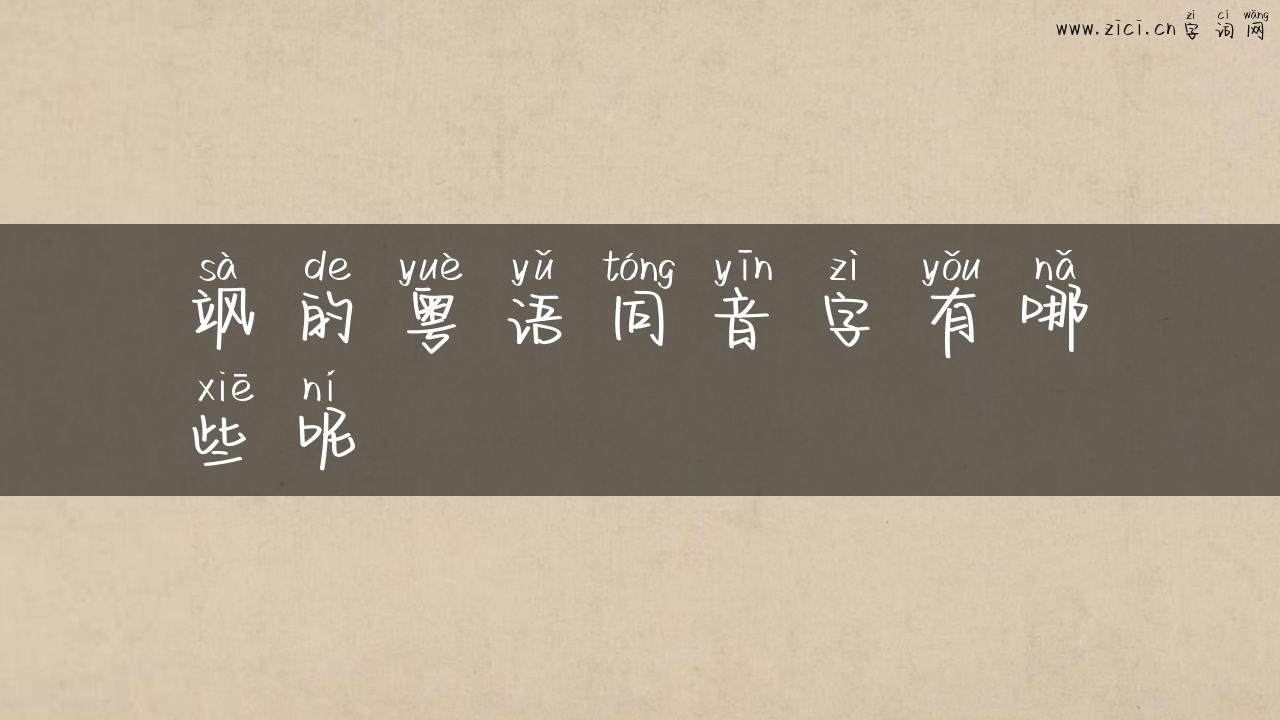 zì cí wǎng
www.zici.cn 字词网
sà de yuè yǔ tóng yīn zì yǒu nǎ
飒的粤语同音字有哪
xiē ní
些呢